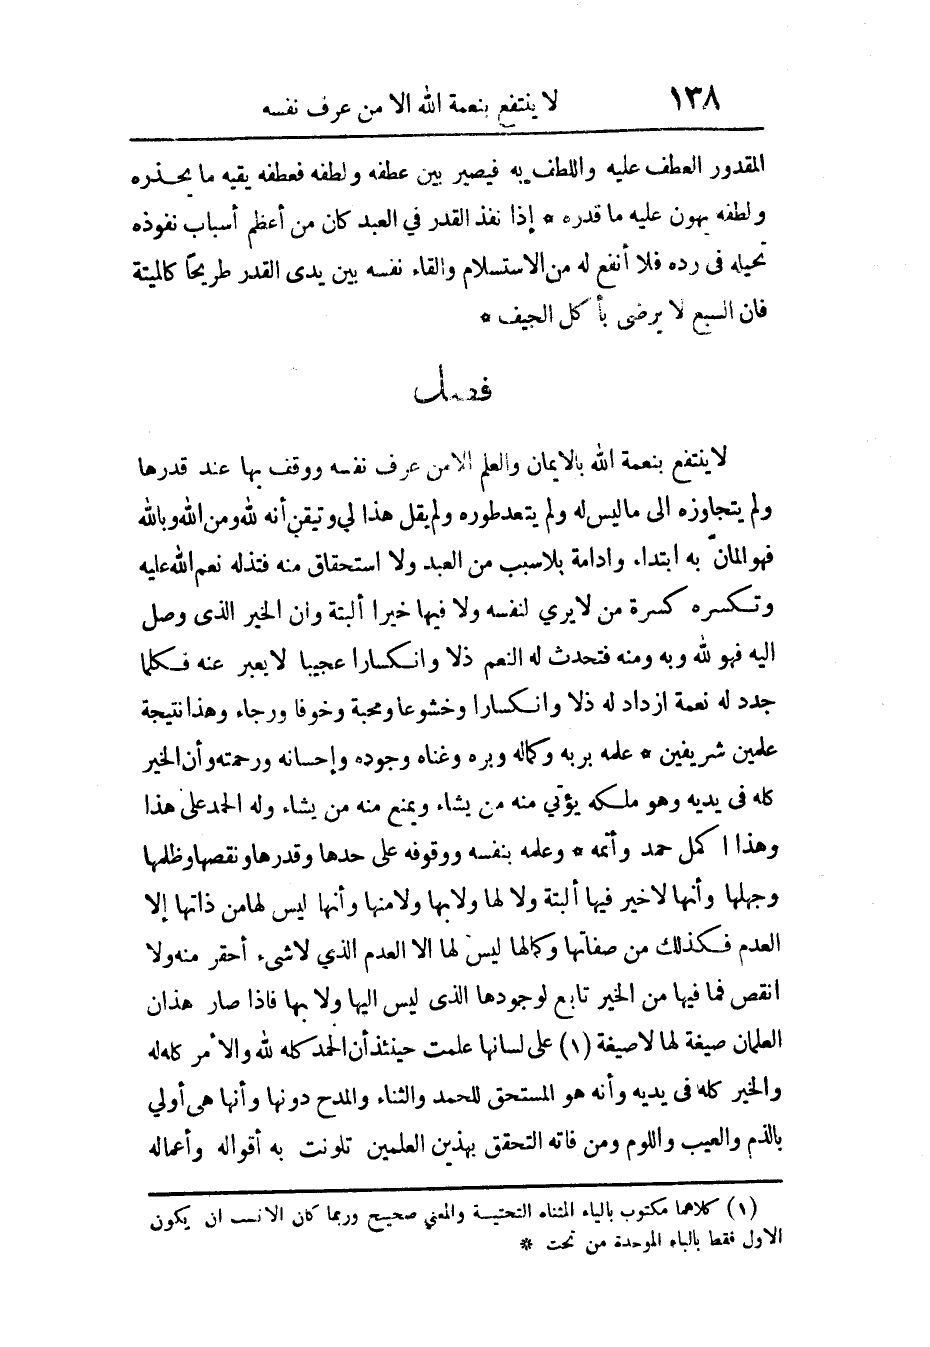 ١٣٨ لا ينتفع بنعمة الله الا من عرف نفسه
المقدور العطف عليه واللطف به فيصير بين عطفه ولطفه فعطفه يقيه ما يحذره
ولطفه يهون عليه ما قدره * إذا نفذ القدر في العبد كان من أعظم أسباب نفوذه
تحيله فى رده فلا أنفع له من الاستسلام والقاء نفسه بين يدى القدر طريحاً كالميتة
فان السبع لا يرضى بأ كل الجيف *
فصل
لا ينتفع بنعمة الله بالايمان والعلم الا من عرف نفسه ووقف بها عند قدرها
ولم يتجاوزه الى ماليس له ولم يتعدطوره ولم يقل هذا لي وتيقن أنه لله ومن الله وبالله
فهو المانّ به ابتداء وادامة بلا سبب من العبد ولا استحقاق منه فتذله نعم الله عليه
وتكسره كسرة من لا يري لنفسه ولا فيها خيرا ألبتة وان الخير الذى وصل
اليه فهو لله وبه ومنه فتحدث له النعم ذلا وانكسارا عجيبا لا يعبر عنه فكلما
جدد له نعمة ازداد له ذلا وانكسارا وخشوعا ومحبة وخوفا ورجاء وهذا نتيجة
علمين شريفين * علمه بربه وكماله وبره وغناه وجوده وإحسانه ورحمته وأن الخير
كله فى يديه وهو ملكه يؤتي منه من يشاء ويمنع منه من يشاء وله الحمد على هذا
وهذا ا كمل حمد وأتمه * وعلمه بنفسه ووقوفه على حدها وقدرها ونقصها وظلمها
وجهلها وأنها لا خير فيها ألبتة ولا لها ولا بها ولا منها وأنها ليس لها من ذاتها إلا
العدم فكذلك من صفاتها وكمالها ليس لها الا العدم الذي لا شىء أحقر منه ولا
انقص فما فيها من الخير تابع لوجودها الذى ليس اليها ولا بها فاذا صار هذان
العلمان صيغة لها لا صيغة (١) على لسانها علمت حينئذ أن الحمد كله لله والأمر كله له
والخير كله فى يديه وأنه هو المستحق للحمد والثناء والمدح دونها وأنها هى أولي
بالذم والعيب واللوم ومن فاته التحقق بهذين العلمين تلونت به أقواله وأعماله
(١) كلاهما مكتوب بالياء المثناه التحتية والمعني صحيح وربما كان الانسب ان يكون
الاول فقط بالباء الموحدة من تحت *